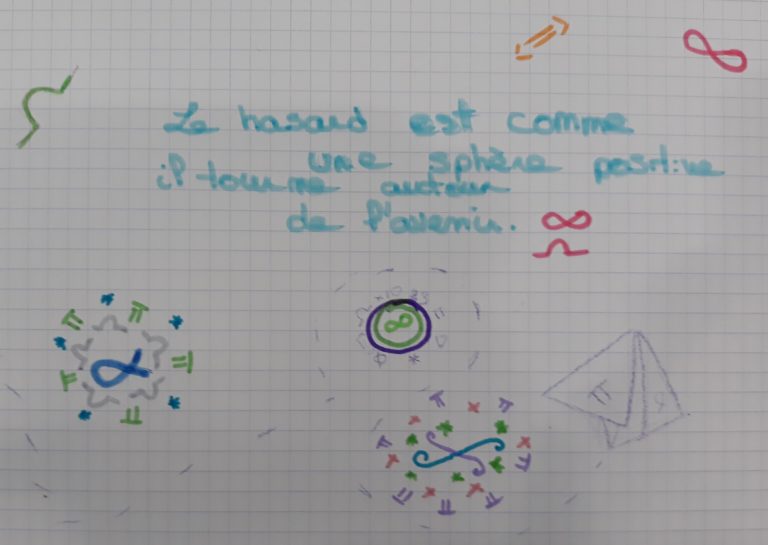 Le hasard est comme
une sphère positive
il tourne autour
de l'avenir. ∞